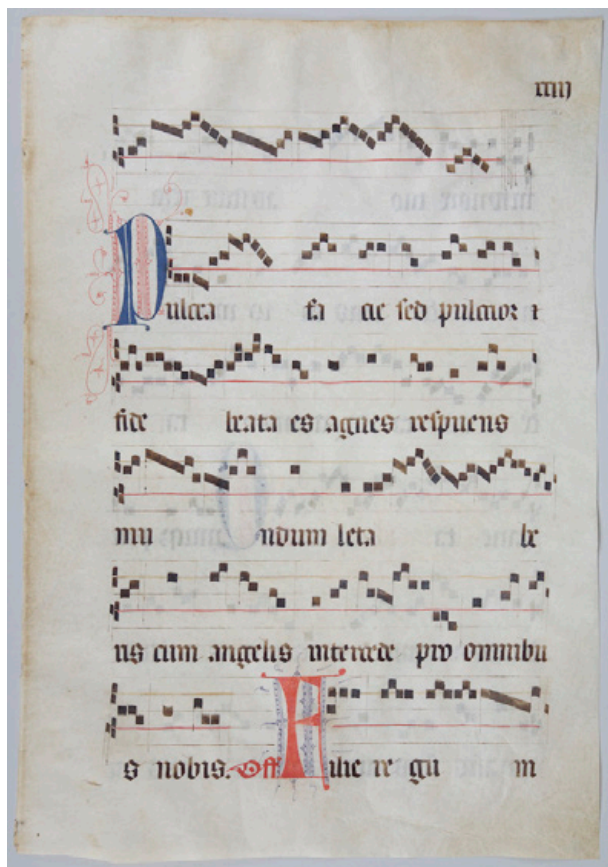 cciiij
Pulcra fa cie sed pulcrior i
fide beata es agnes respuens
mu ndum leta be
us cum angelis intercede pro omnibu
s nobis. Off Filie re gu m